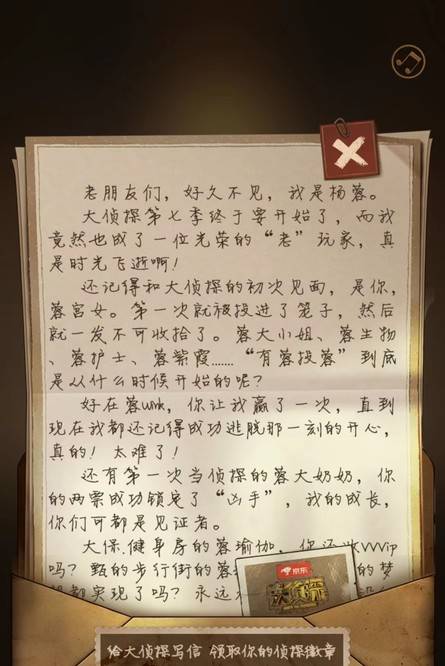 老朋友们，好久不见，我是杨蓉。
大侦探第七季终于要开始了，而我
竟然也成了一位光荣的“老”玩家，真
是时光飞逝啊！
还记得和大侦探的初次见面，是你，
蓉宫女。第一次就被投进了笼子，然后
就一发不可收拾了。蓉大小姐、蓉生物
、蓉护士、蓉紫霞……“有蓉投蓉”到底
是从什么时候开始的呢？
好在蓉wink，你让我赢了一次，直到
现在我都还记得成功逃脱那一刻的开心，
真的！太难了！
还有第一次当侦探的蓉大奶奶，你
的两票成功锁定了“凶手”，我的成长，
你们可都是见证者。
大保健身房的蓉瑜伽，你还是VVVip
吗？甄的步行街的蓉
的梦
都实现了吗？永远
京东
大侦探
给大侦探写信 领取你的侦探徽章